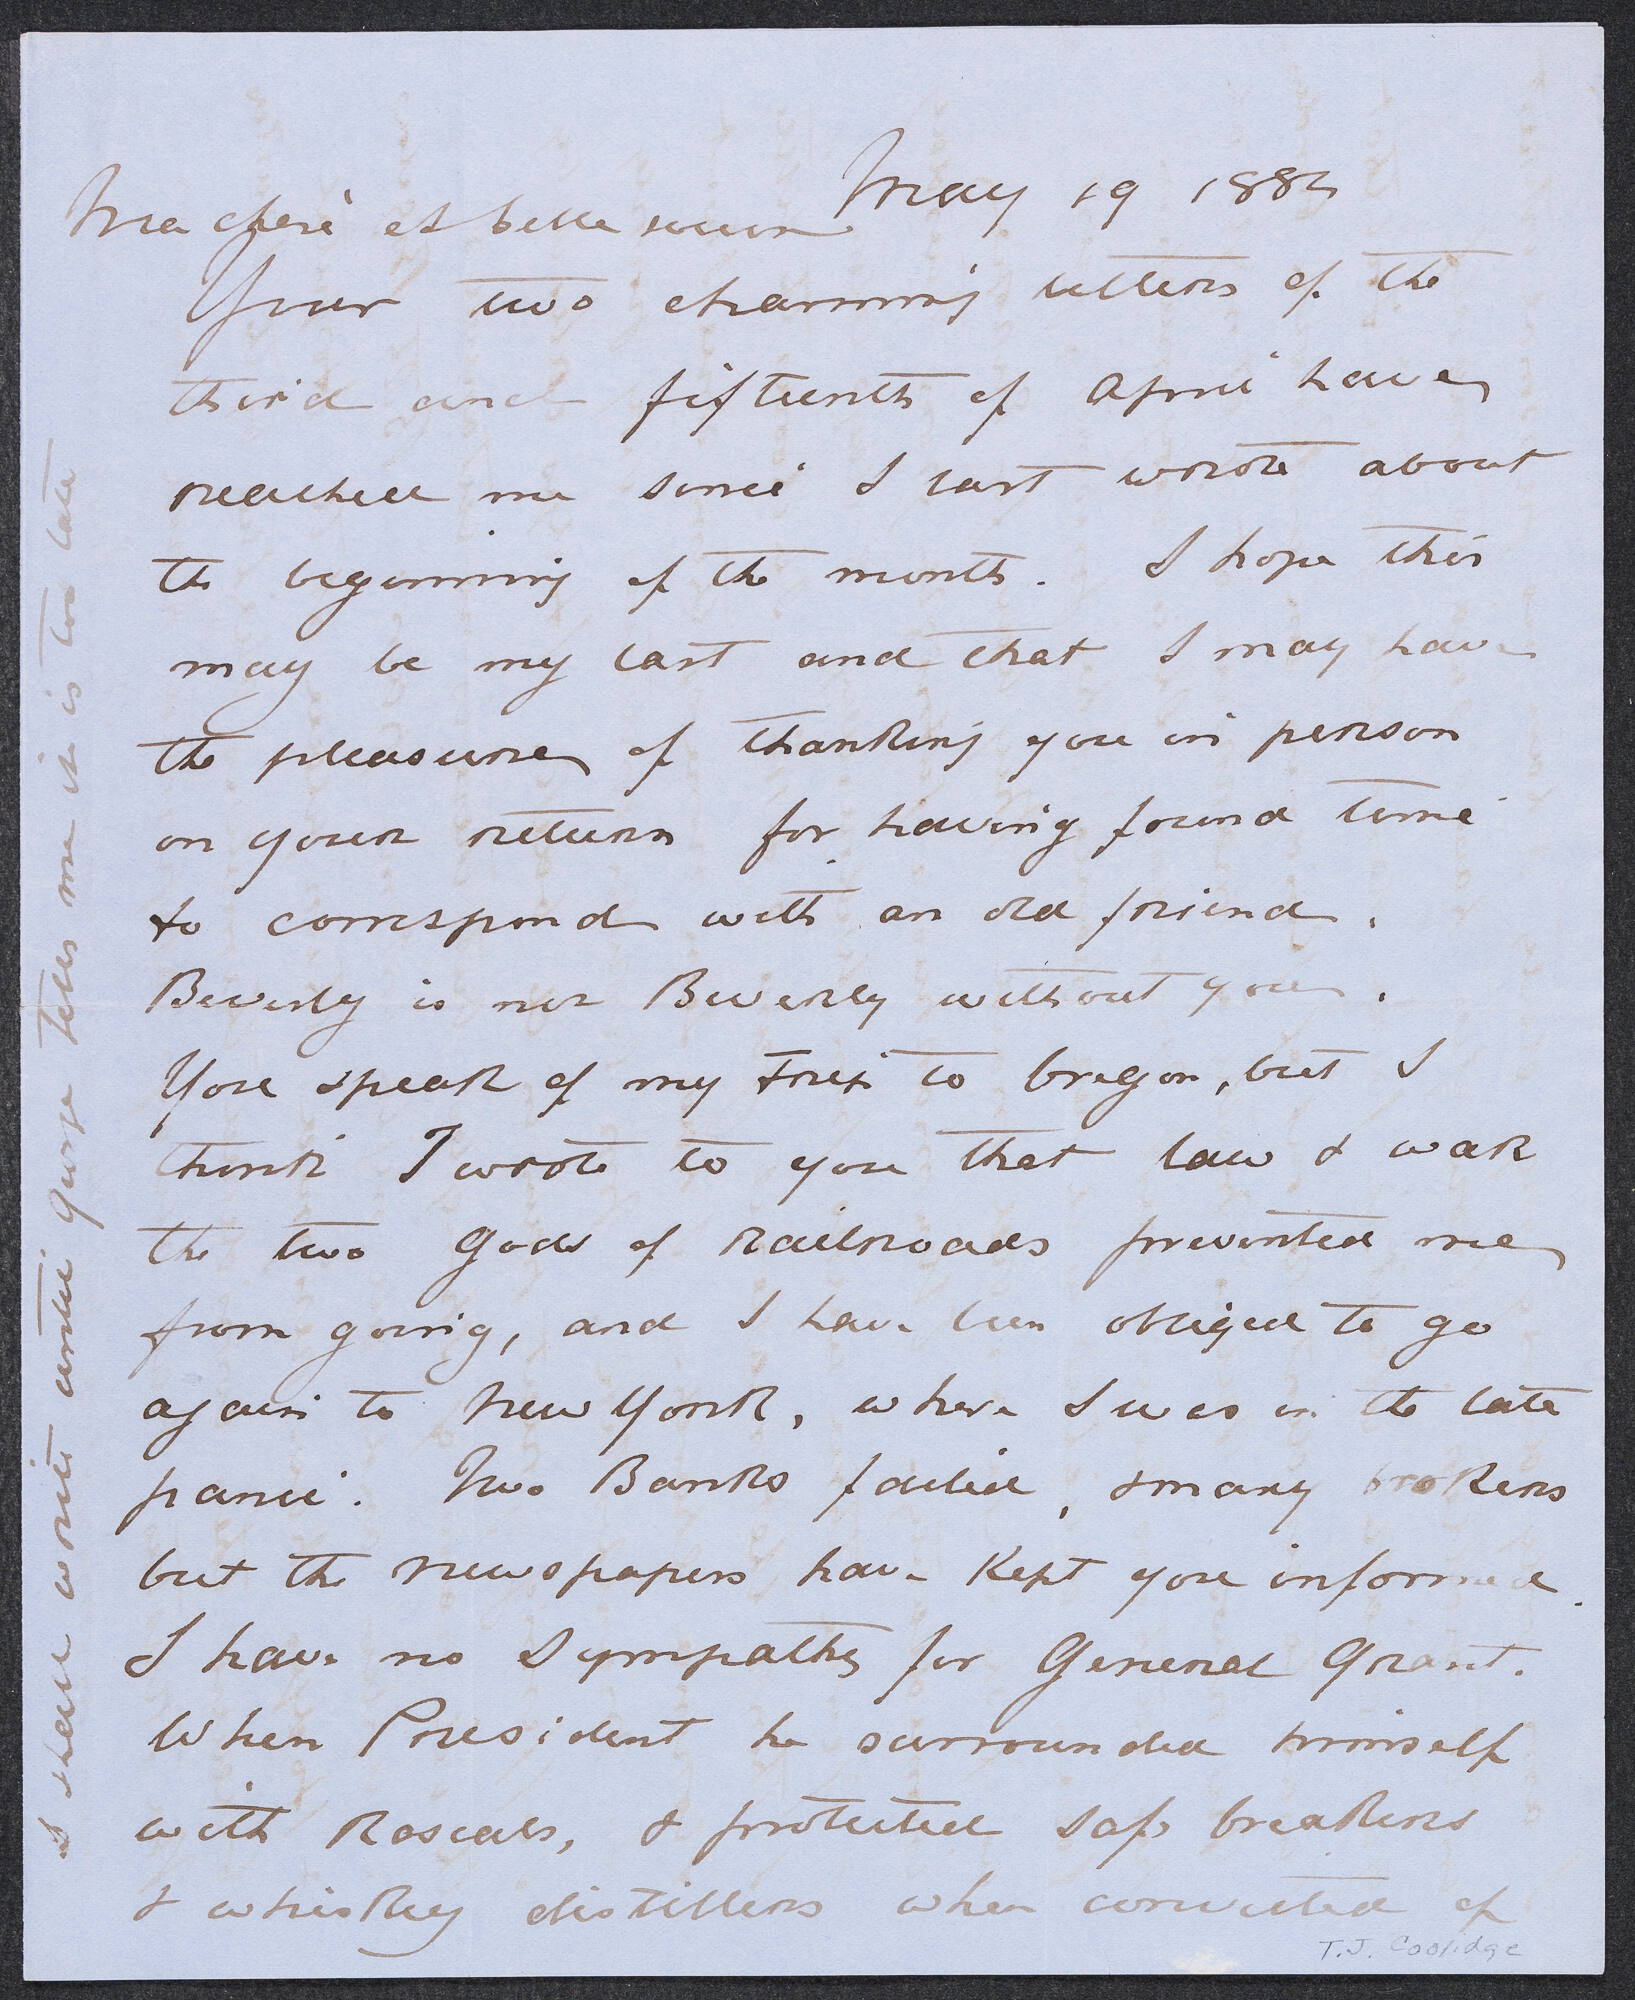 May 19 1884
Ma chère et belle soeur
Your two charming letters of the
third and fifteenth of April have
reached me since I last wrote about
the beginning of the month. I hope this
may be my last and that I may have
the pleasure of thanking you in person
on your return for having found time
to correspond with an old friend.
Beverly is not Beverly without you.
You speak of my trip to Oregon, but I
think I wrote to you that law & war
the two Gods of Railroads prevented me
from going, and I have been obliged to go
again to New York, where I was in the late
panic. Two Banks failed, & many brokers
but the newspapers have kept you informed.
I have no sympathy for General Grant.
When President he surrounded himself
with Rascals, & protected safe breakers
& whiskey distillers when convicted of
T.J. Coolidge
I shall write until George tells me it is too late